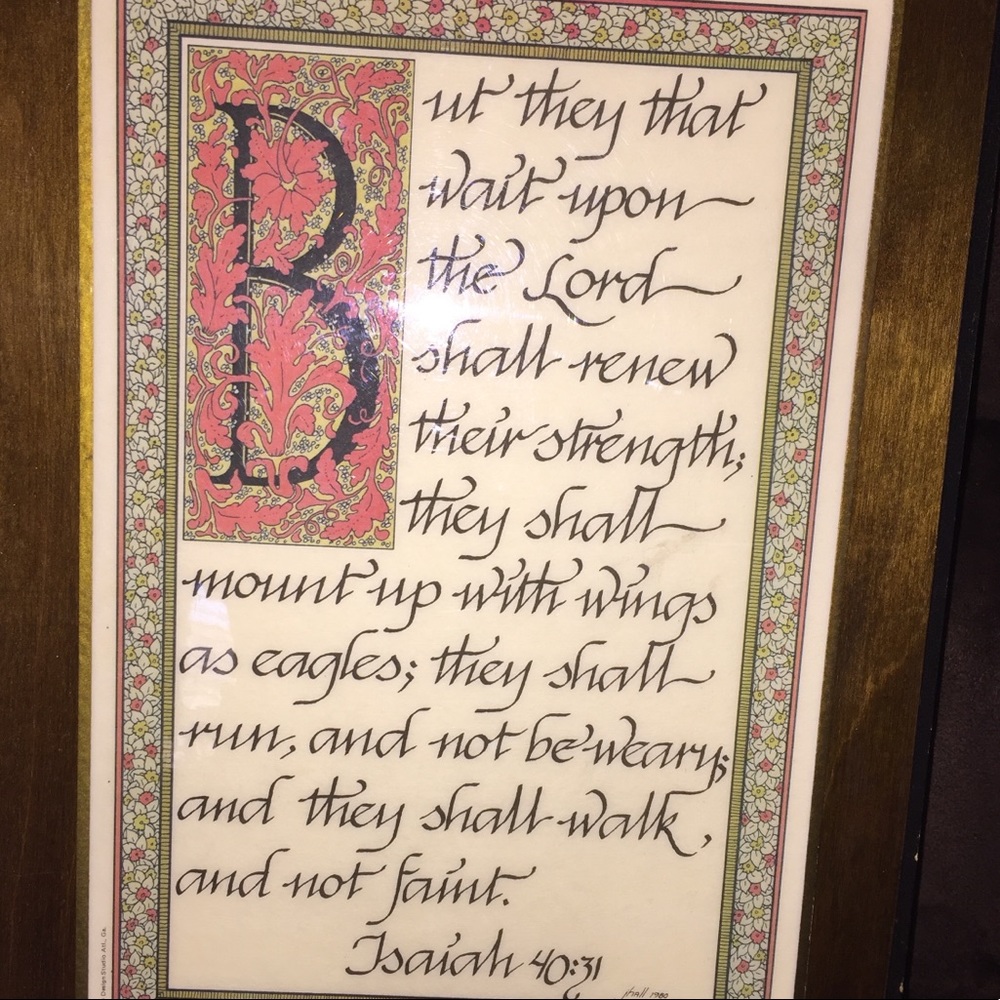 But they that
wait upon
the Lord
shall renew
their strength;
they shall
mount up with wings
as eagles; they shall
run, and not be weary;
and they shall walk,
and not faint.
Isaiah 40:31
jhall 1980
Design Studio Atl., Ga.